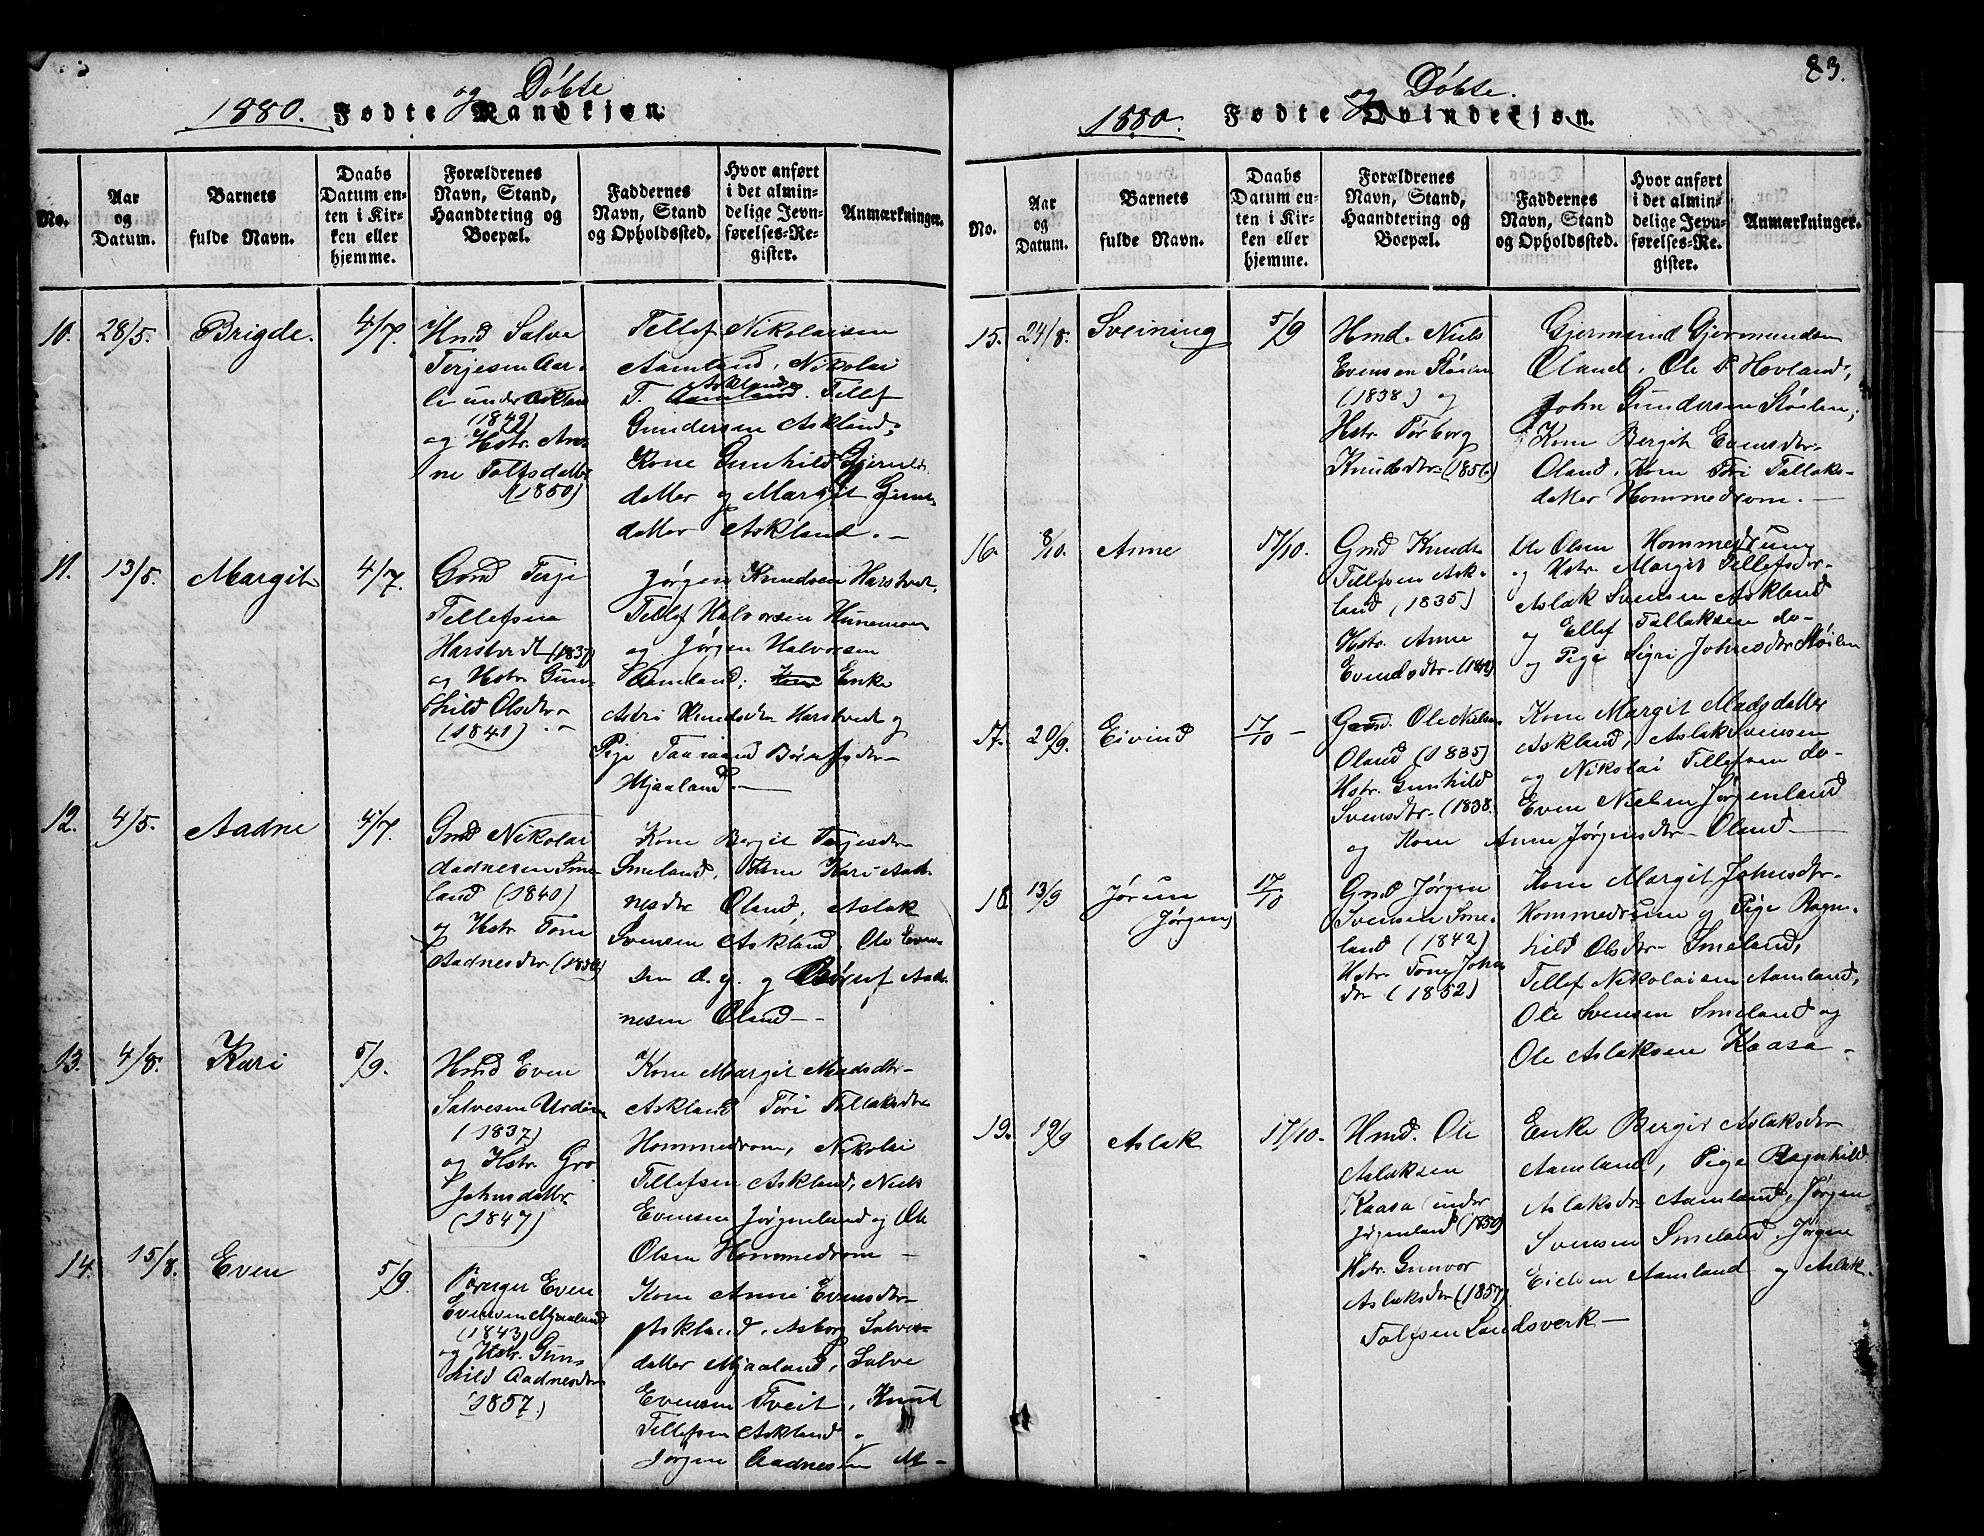 1880. Fødte og Døbte Mandkjøn.
No.
Aar
og
Datum.
Barnets
fulde Navn.
Daabs
Datum en-
ten i Kir-
ken eller
hjemme.
Forældrenes
Navn, Stand,
Haandtering og
Boepæl.
Faddernes
Navn, Stand
og Opholdssted.
Hvor anført
i det almin-
delige Jevn-
førelses-Re-
gister.
Anmærkninger.
10. 28/5. Brigde. 4/7.
Hmd Salve
Terjesen Aar-
li under Askland
(1842)
og Hstr. An-
ne Tolfsdatter
(1850)
Tellef Nikolaisen
Aamland, Nikolai
Askland
T. Aamland. Tellef
Gundersen Askland,
Kone Gunhild Gjerulds
datter og Margit Gjeruls
datter Askland. —
11. 13/5. Margit 4/7.
Gmd Terje
Tellefsen
Harstvedt (1837)
og Hstr Gun-
hild Olsdtr
(1841). —
Jørgen Knudsen Harstvedt,
Tellef Halvorsen Hunemoen
og Jørgen Halvorsen
Aamland; Kone Enke
Asbri Knudsdtr Harstvedt og
Pige Taaraand Børufsdtr
Mjaaland. —
12. 4/5. Aadne 4/7.
Gmd Nikolai
Aadnesen Sme-
land (1840)
og Hstr Tone
Aadnesdtr. (1850)
Kone Bergit Terjesdtr
Smeland, Kone Kari Aad-
nesdtr Øland, Aslak
Svensen Askland, Ole Even-
sen d. y. og Børuf Aad-
nesen Øland —
13. 4/8. Kari 5/9.
Hmd Even
Salvesen Urdaen
(1837)
og Hstr. Gro
Johnsdatter
(1847)
Kone Margit Madsdtr
Askland Tori Tallaksdtr
Hommedrom, Nikolai
Tellefsen Askland, Niels
Evensen Jørgenland og Ole
Olsen Hommedrom —
14. 15/8. Even 5/9.
Forager Even
Evensen Mjaaland
(1843)
og Hstr. Gun-
hild Aadnesdtr
(1857.)
Kone Anne Evensdtr
Askland, Asborg Salves-
datter Mjaaland, Salve
Evensen Tveit, Knud
Tellefsen Askland og
Jørgen Aadnesen M—
83.
1880. Fødte og Døbte. Qvindekjøn.
No.
Aar
og
Datum.
Barnets
fulde Navn.
Daabs
Datum en-
ten i Kir-
ken eller
hjemme.
Forældrenes
Navn, Stand,
Haandtering og
Boepæl.
Faddernes
Navn, Stand
og Opholdssted.
Hvor anført
i det almin-
delige Jevn-
førelses-Re-
gister.
Anmærkninger.
15. 24/8. Sveining 5/9
Hmd. Niels
Evensen Støilen
(1838) og
Hstr. Torborg
Knudsdtr (1856)
Gjermund Gjermundsen
Øland, Ole P. Hovland,
John Gundersen Støilen,
Kone Bergit Evensdtr
Øland, Kone Tori Tallaks-
datter Hommedrom. —
16. 8/10. Anne 17/10.
Gmd Knud
Tellefsen Ask-
land (1835)
Hstr. Anne
Evendsdtr (1842)
Ole Olsen Hommedrum
og Hstr. Margit Tellefsdtr
Aslak Svensen Askland
og Ellef Tallaksen do-
og Pige Sigri Johnsdtr Støilen
17. 20/9. Eivind 17/10 —
Gmd. Ole Nielsen
Øland (1835)
Hstr. Gunhild
Svensdtr (1838.
Kone Margit Madsdatter
Askland, Aslak Svensen
og Nikolai Tellefsen do-
Even Nielsen Jørgenland
og Kone Anne Jørgensdtr Øland —
18. 13/9 Jørun
Jørgen 17/10
Gmd Jørgen
Svensen Sme-
land (1842)
Hstr. Tone Johns
dtr (1852)
Kone Margit Johnsdtr
Hommedrum og Pige Ragn-
hild Olsdtr Smeland,
Tellef Nikolaisen Aamland,
Ole Svensen Smeland og
Ole Aslaksen Kaasa —
19. 19/9 Aslak 17/10.
Hmd. Ole
Aslaksen
Kaasa under
Jørgenland (1850)
Hstr. Gunvor
Aslaksdtr (1857)
Enke Bergit Aslaksdtr
Aamland, Pige Ragnhild
Aslaksdtr Aamland, Jørgen
Svensen Smeland. Jørgen
Eielsen Aamland og Aslak
Tolfsen Landsverk —